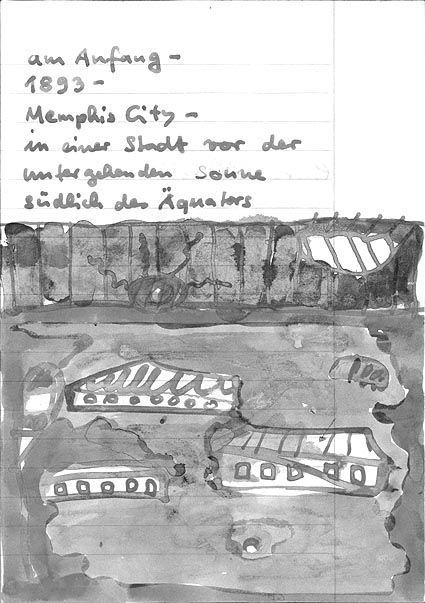 am Anfang –
1893 –
Memphis City –
in einer Stadt vor der
untergehenden Sonne
südlich des Äquators